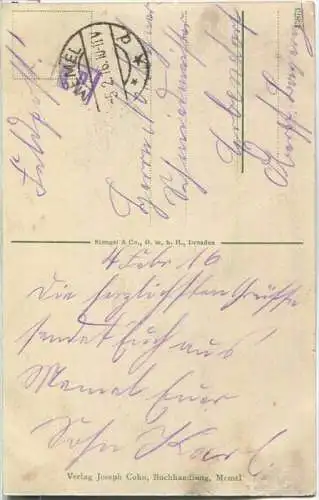 Feldpost!
MEMEL
5.2.16.11-12V
Herrn
Schmiedemeister
Stengel & Co., G. m. b. H., Dresden
4 Febr 16
Die herzlichsten Grüsse
sendet Euch aus
Memel Euer
Sohn Karl.
Verlag Joseph Cohn, Buchhandlung, Memel